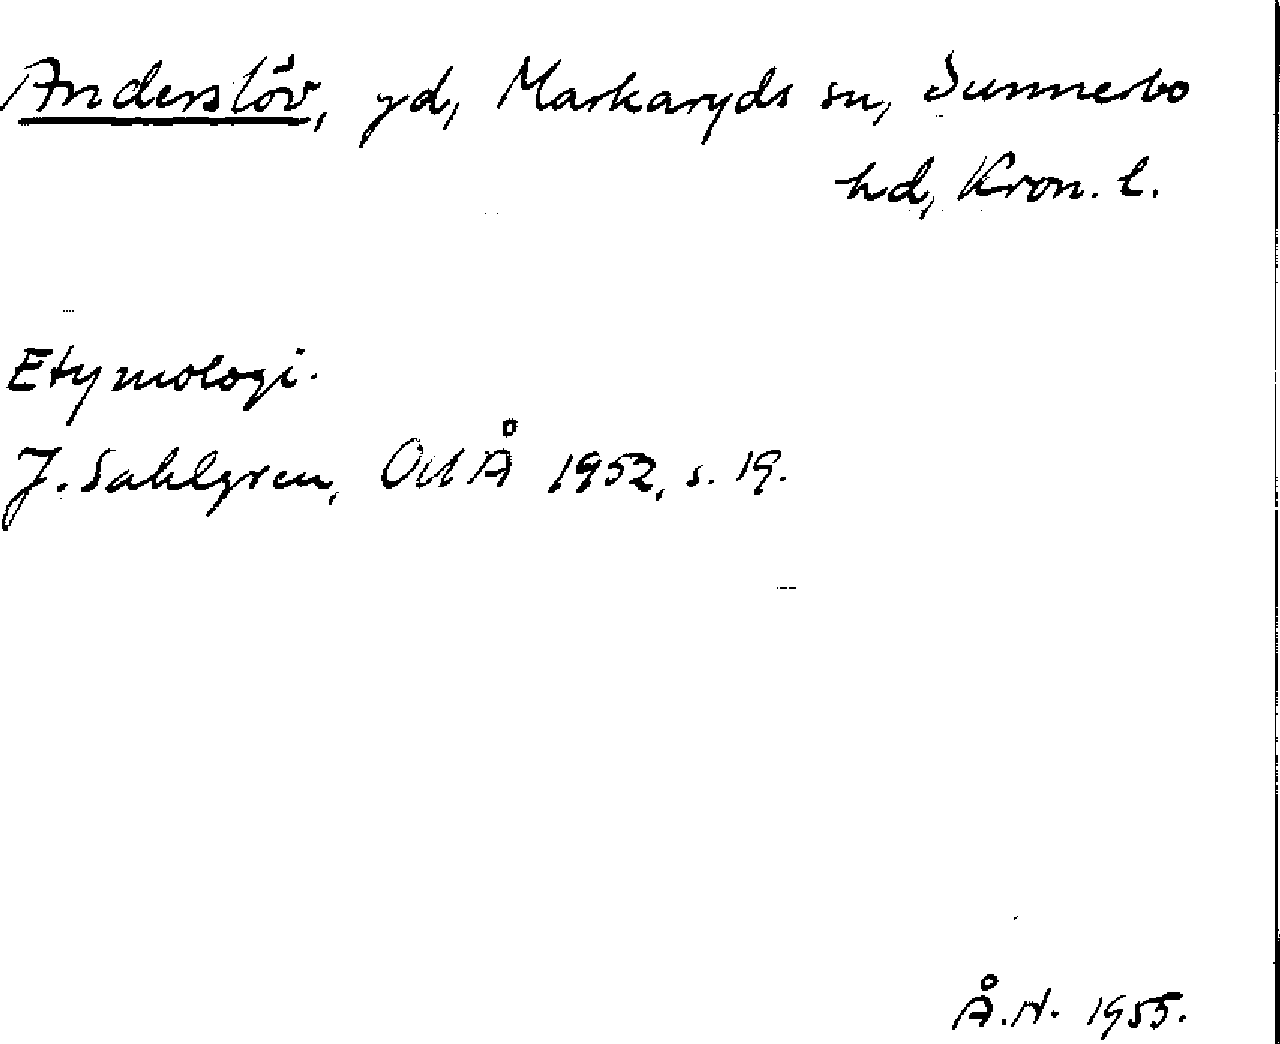 Anderslöv, gd, Markaryds sn, Sunnerbo
hd, Kron. l.
Etymologi.
J. Sahlgren, OUÅ 1952, s. 19.
Å.H. 1955.